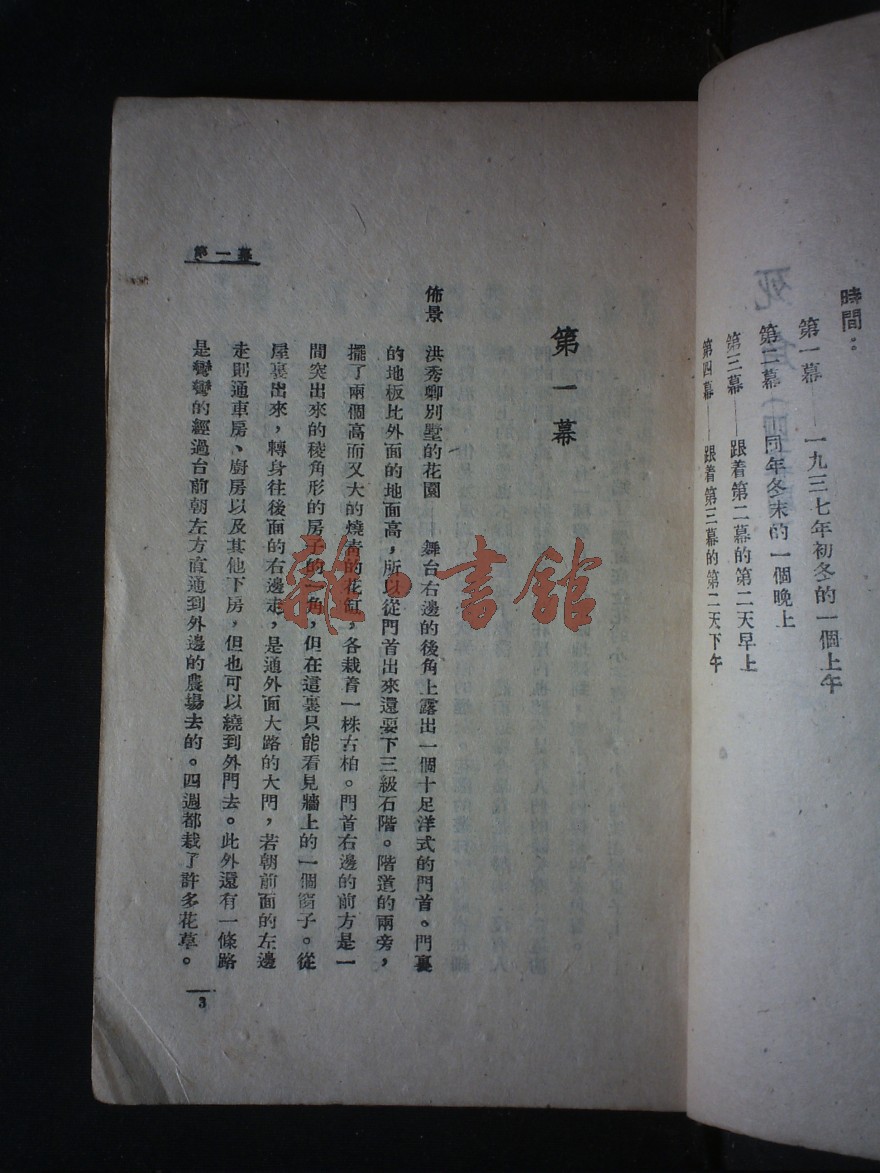 時間：
第一幕——一九三七年初冬的一個上午
第二幕——同年冬末的一個晚上
第三幕——跟着第二幕的第二天早上
第四幕——跟着第三幕的第二天下午
第一幕
佈景　洪秀卿別墅的花園　舞台右邊的後角上露出一個十足洋式的門首。門裏
的地板比外面的地面高，所以從門首出來還要下三級石階。階道的兩旁，
擺了兩個高而又大的燒青的花缸，各栽着一株古柏。門首右邊的前方是一
間突出來的稜角形的房子的一角，但在這裏只能看見牆上的一個窗子。從
屋裏出來，轉身往後面的右邊走，是通外面大路的大門，若朝前面的左邊
走則通車房、廚房以及其他下房，但也可以繞到外門去。此外還有一條路
是彎彎的經過台前朝左方直通到外邊的農場去的。四週都栽了許多花草。
第一幕
3
雜·書館